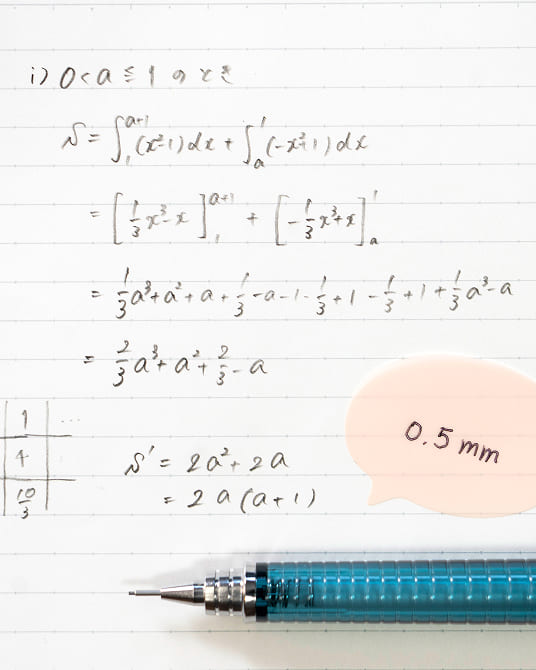 i) 0 < a ≦ 1 のとき
S = ∫₁ᵃ⁺¹ (x²-1)dx + ∫ₐ¹ (-x²+1)dx
= [1/3 x³-x]₁ᵃ⁺¹ + [-1/3 x³+x]ₐ¹
= 1/3 a³+a²+a+1/3-a-1-1/3+1-1/3+1+1/3 a³-a
= 2/3 a³+a²+2/3-a
1 ...
4
10/3
S' = 2a²+2a
= 2a(a+1)
0.5 mm